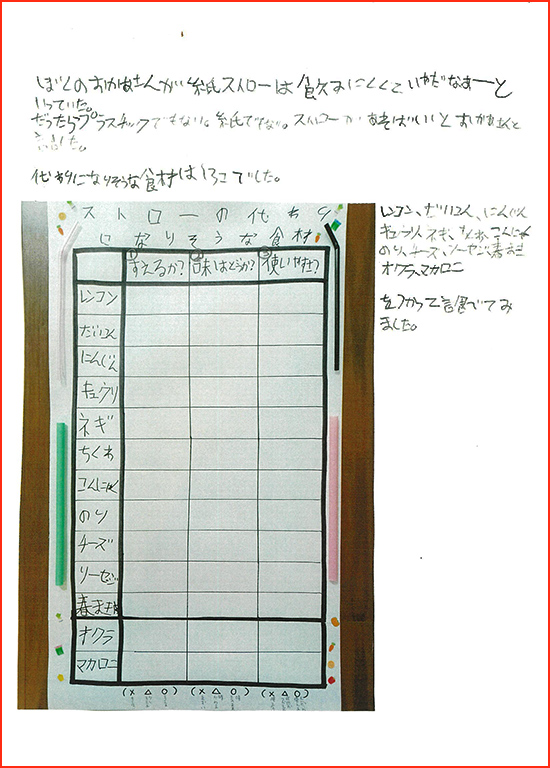 ぼくのおかあさんが紙ストローは飲みにくくていやだなぁーと
いっていた。
だったらプラスチックでもない。紙でない。ストローがあればいいとおかあさんと
話した。
代わりになりそうな食材はいろでした。
ストローの代わり
になりそうな食材
①すえるか? ②味はどうか? ③使いやすさ?
レンコン
だいこん
にんじん
キュウリ
ネギ
ちくわ
こんにゃく
のり
チーズ
ソーセージ
春まき
オクラ
マカロニ
(X △ O) (X △ O) (X △ O)
レンコン、だいこん、にんじん
キュウリ、ネギ、ちくわ、こんにゃく
のり、チーズ、ソーセージ、春まき
オクラ、マカロニ
をつかって試してみ
ました。